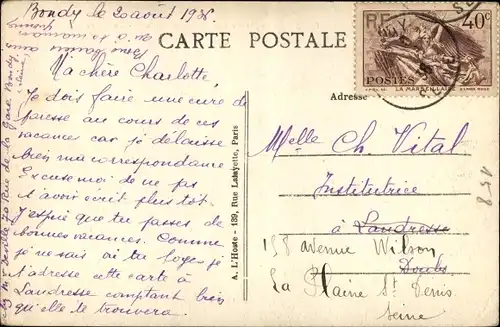 Bondy le 20 août 1936.
CARTE POSTALE
RF
40c
POSTES
LA MARSEILLAISE
Adresse
Ma chère Charlotte,
Je dois faire une cure de
paresse au cours de ces
vacances car je délaisse
bien ma correspondance
Excuse moi de ne pas
t'avoir écrit plus tôt.
J'espère que tu passes de
bonnes vacances. Comme
je ne sais où tu loges je
t'adresse cette carte à
Landresse comptant bien
qu'elle te trouvera.
Rue de la Gare Bondy
A. L'Hoste - 139, Rue Lafayette, Paris
Melle Ch. Vital
Institutrice
à Landresse
Doubs
158 avenue Wilson
La Plaine St Denis
Seine
158